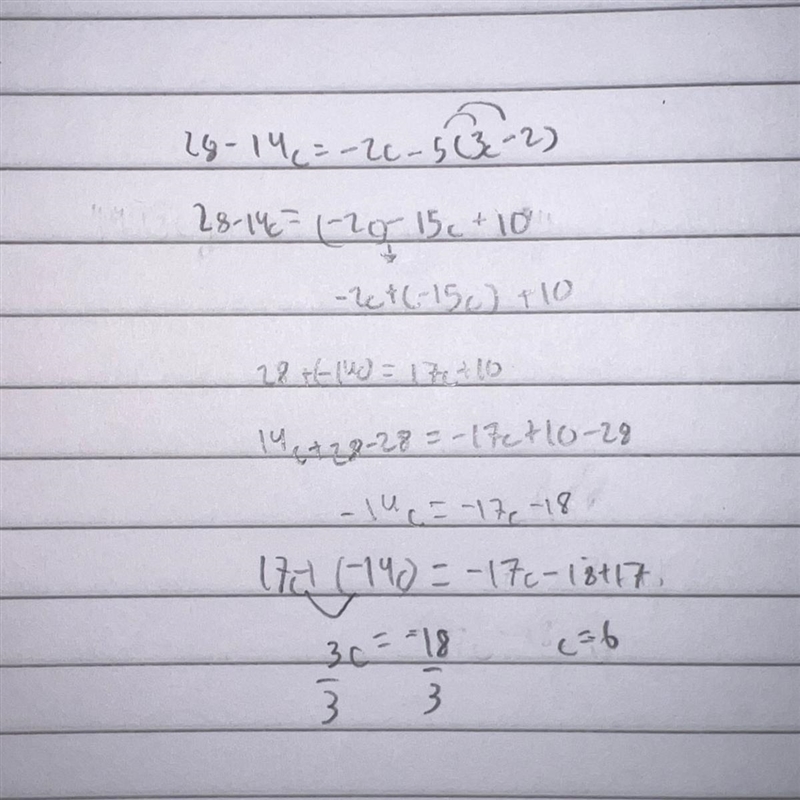 28-14c=-2c-5(3c-2)
28-14c=(-2c)-15c+10
-2c+(-15c)+10
28+(-14c)=17c+10
14c+28-28=-17c+10-28
-14c=-17c-18
17c+(-14c)=-17c-18+17c
3c=-18 c=6
3 3